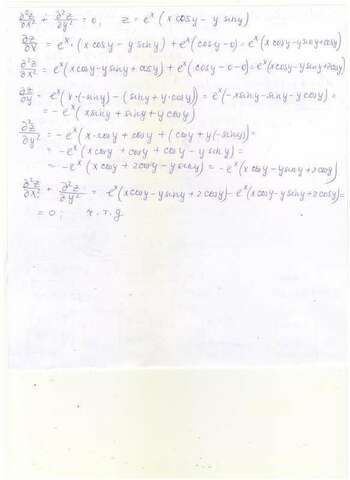 ∂²z/∂x² + ∂²z/∂y² = 0, z = e^x (x cosy − y siny)
∂z/∂x = e^x · (x cosy − y siny) + e^x (cosy − 0) = e^x (x cosy − y siny + cosy)
∂²z/∂x² = e^x (x cosy − y siny + cosy) + e^x (cosy − 0 − 0) = e^x (x cosy − y siny + 2cosy)
∂z/∂y = e^x (x · (−siny) − (siny + y · cosy)) = e^x (−x siny − siny − y cosy) =
= −e^x (x siny + siny + y cosy)
∂²z/∂y² = −e^x (x · cosy + cosy + (cosy + y (−siny))) =
= −e^x (x cosy + cosy + cosy − y siny) =
= −e^x (x cosy + 2cosy − y siny) = −e^x (x cosy − y siny + 2cosy)
∂²z/∂x² + ∂²z/∂y² = e^x (x cosy − y siny + 2cosy) − e^x (x cosy − y siny + 2cosy) =
= 0; ч.т.д